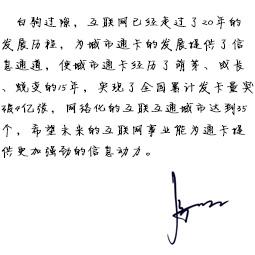 白驹过隙，互联网已经走过了20年的
发展历程，为城市通卡的发展提供了信
息通道，使城市通卡经历了萌芽、成长
、蜕变的15年，实现了全国累计发卡量突
破4亿张，网络化的互联互通城市达到35
个，希望未来的互联网事业能为通卡提
供更加强劲的信息动力。